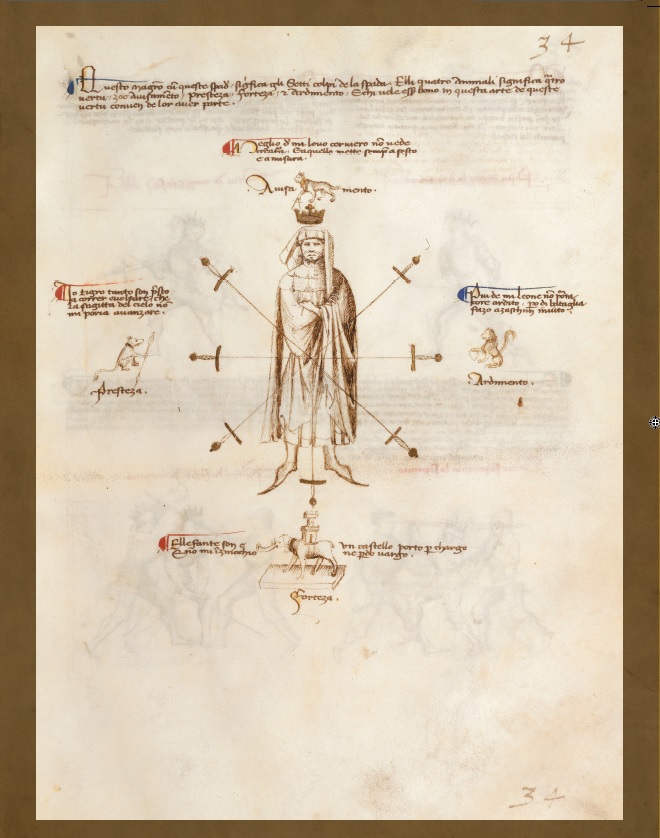 34
Questo magrō cū queste spad' sigfica gli Setti colpi de la spada. Elli quatro Animali significa q̄tro
vertu, zoe Avisamēto, Presteza, Forteza, 7 Ardimento. E chi vole ess bono in questa arte de queste
vertu conuen de lor auer parte.
Meglio d mi louo ceruiero nō uede
creatūa. Eaquello mette semp̄ a sesto
e a misura.
Auisa mento.
Io tigro tanto son p̄sto
a correr e uoltare che
la sagitta del cielo nō
mi poria auanzare.
Presteza.
Piu de mi leone nō porta
core ardito, p̄o di bataglia
fazo azaschun inuito.
Ardimento.
Ellefante son e un castello porto p chargo
E nō mi īzinochio ne pdo uargo.
Forteza.
34